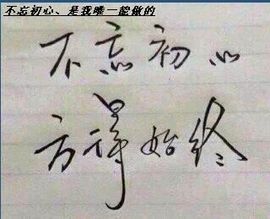 不忘初心、是我唯一能做的
不忘初心
方得始终